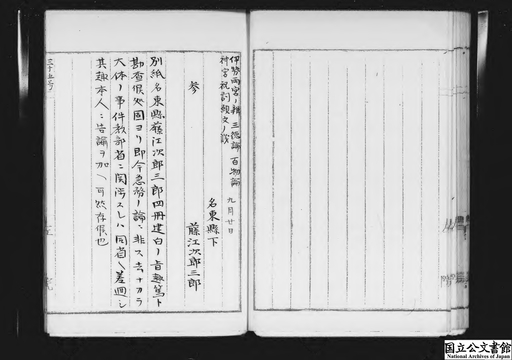 伊勢両宮ノ辨三徳論百物論
神宮祝詞類文ノ議 九月廿日
名東縣下
藤江次郎三郎
参
別紙名東縣藤江次郎三郎四冊建白ノ旨趣篤ト
勘査候処固ヨリ即今急務ノ論ニ非ス去ナカラ
大体ノ事件教部省ニ関渉スレハ同省ヘ差廻シ
其趣本人ニ告諭ヲ加ヘ可然存候也
国立公文書館
National Archives of Japan